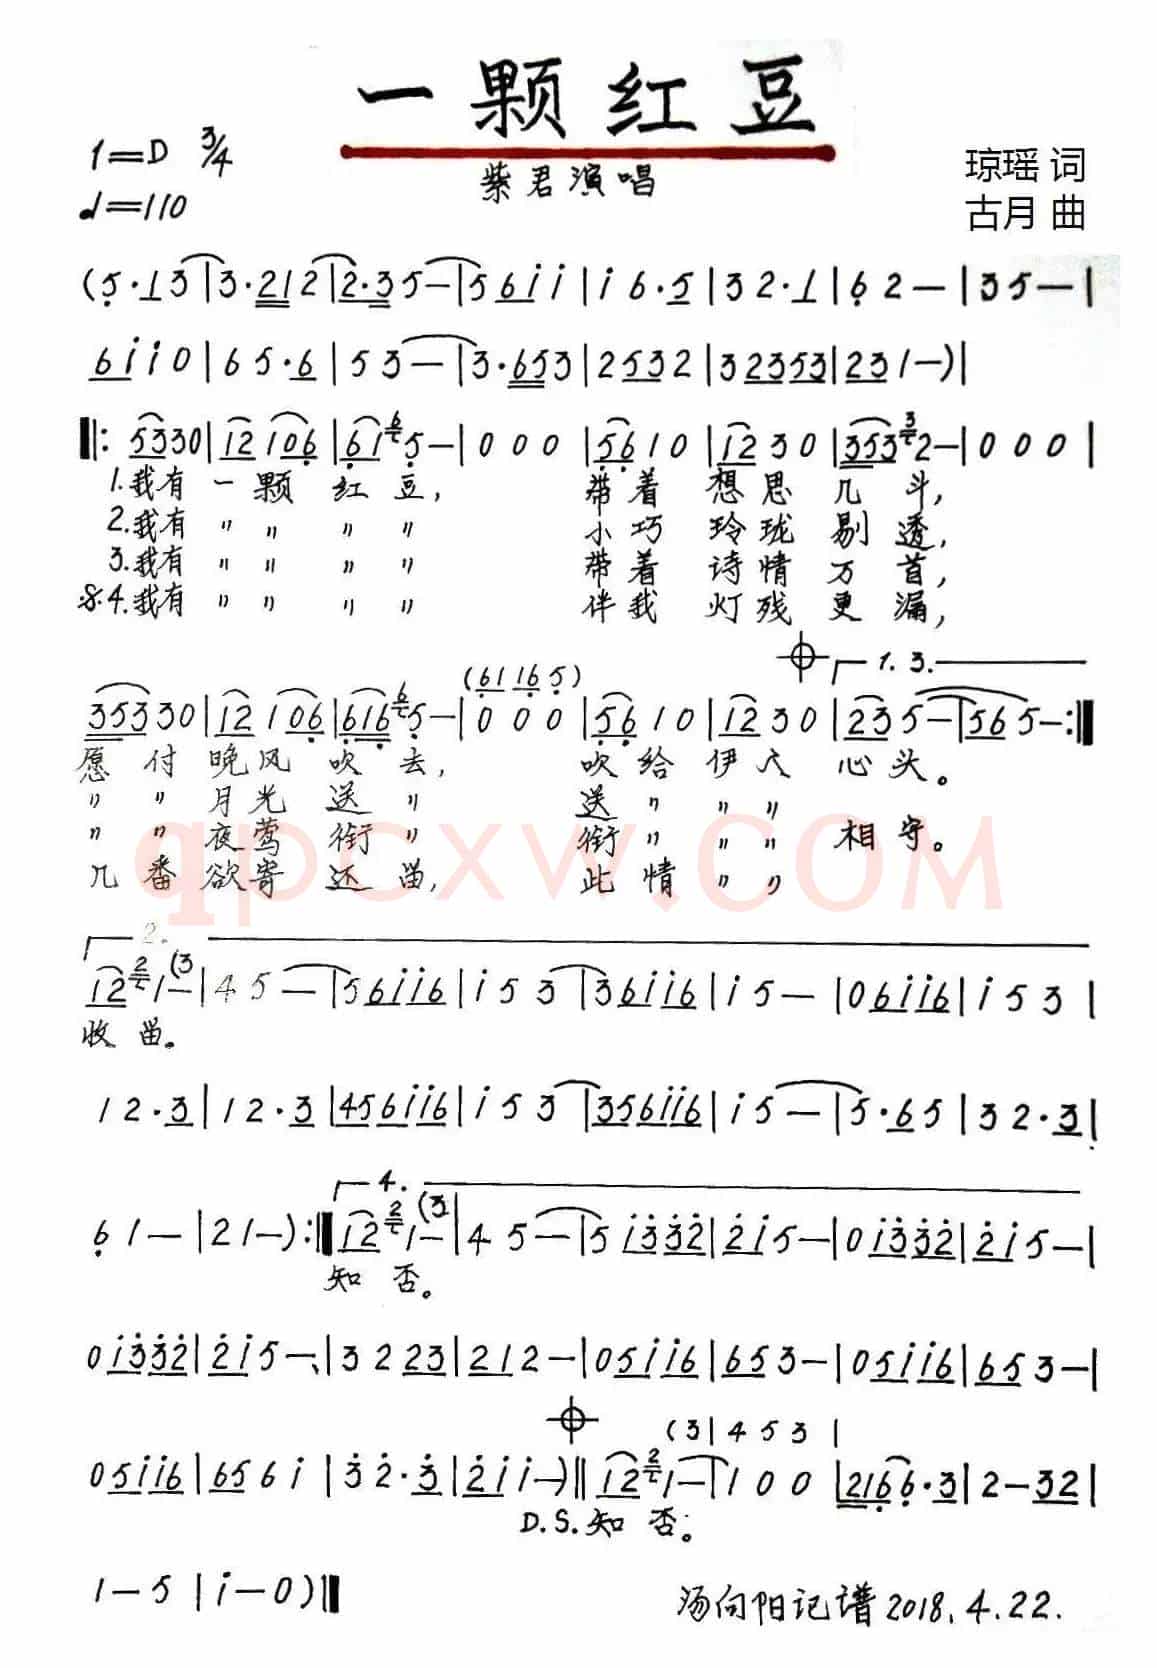 一颗红豆
1=D 3/4
♩=110
紫君演唱
琼瑶 词
古月 曲
(5·13|3·212|2·35—|56i i|i6·5|32·1|62—|35—|
6i i0|65·6|53—|3·653|2532|32353|231—)|
‖:53330|12106|615—|000|5610|1230|3532—|000|
1.我有一颗红豆, 带着想思几斗,
2.我有〃〃〃〃 小巧玲珑剔透,
3.我有〃〃〃〃 带着诗情万首,
𝄋4.我有〃〃〃〃 伴我灯残更漏,
(61 16 5)
1. 3.
353330|12106|6165—|000|5610|1230|235—|565—:‖
愿付晚风吹去, 吹给伊人心头。
〃〃月光送〃 送〃〃〃
〃〃夜莺衔〃 衔〃〃〃相守。
几番欲寄还留, 此情〃〃
qpcxw.COM
2.
121—(3|45—|56i i6|i53|36i i6|i5—|06i i6|i53|
收留。
12·3|12·3|456i i6|i53|356i i6|i5—|5·65|32·3|
4.
61—|21—):‖121—(3|45—|5i332|2i5—|0i332|2i5—|
知否。
0i332|2i5—|3223|212—|05i i6|653—|05i i6|653—|
(3|453|
05i i6|656i|32·3|2i i—)‖121—|100|2166·3|2—32|
D.S.知否。
1—5|i—0)‖
汤向阳记谱2018.4.22.